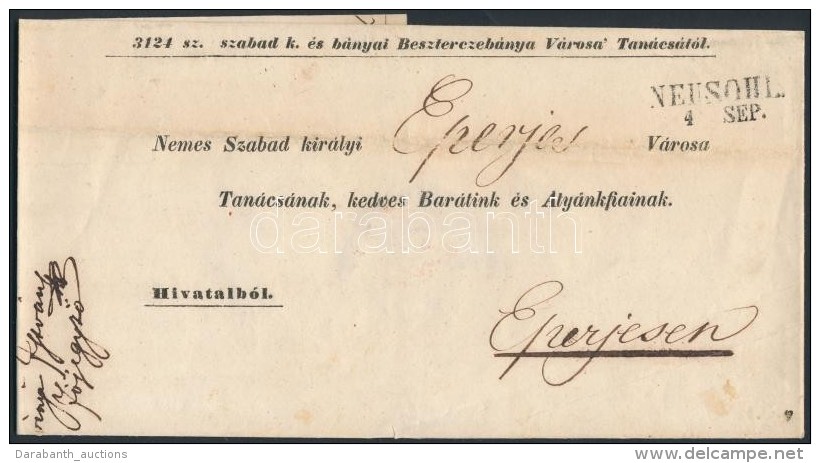 3124 sz. szabad k. és bányai Beszterczebánya Városa' Tanácsától.
NEUSOHL.
4 SEP.
Nemes Szabad királyi Eperjes Városa
Tanácsának, kedves Barátink és Atyánkfiainak.
darabanth
Hivatalból.
Eperjesen
István
főjegyző
Darabanth_auctions
www.delcampe.net